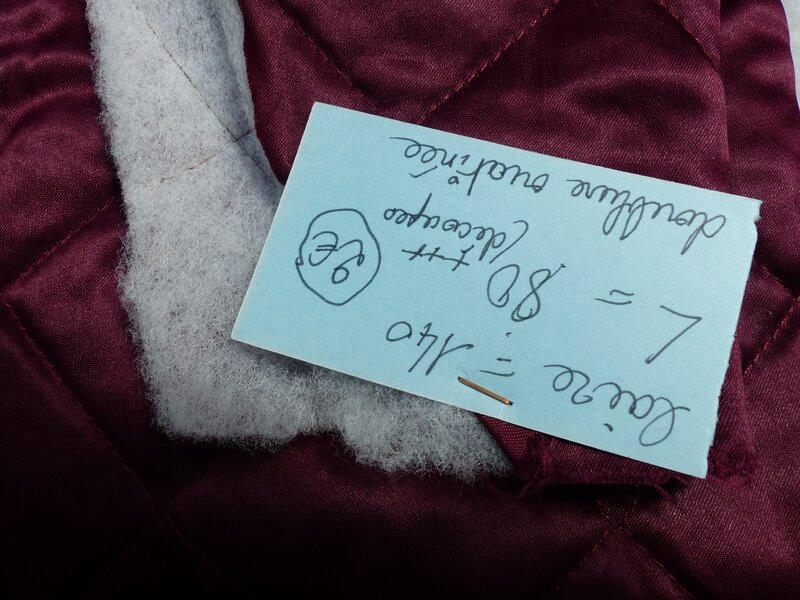 laize = 140
L = 80 +++
(découpes
2€
doublure ouatinée